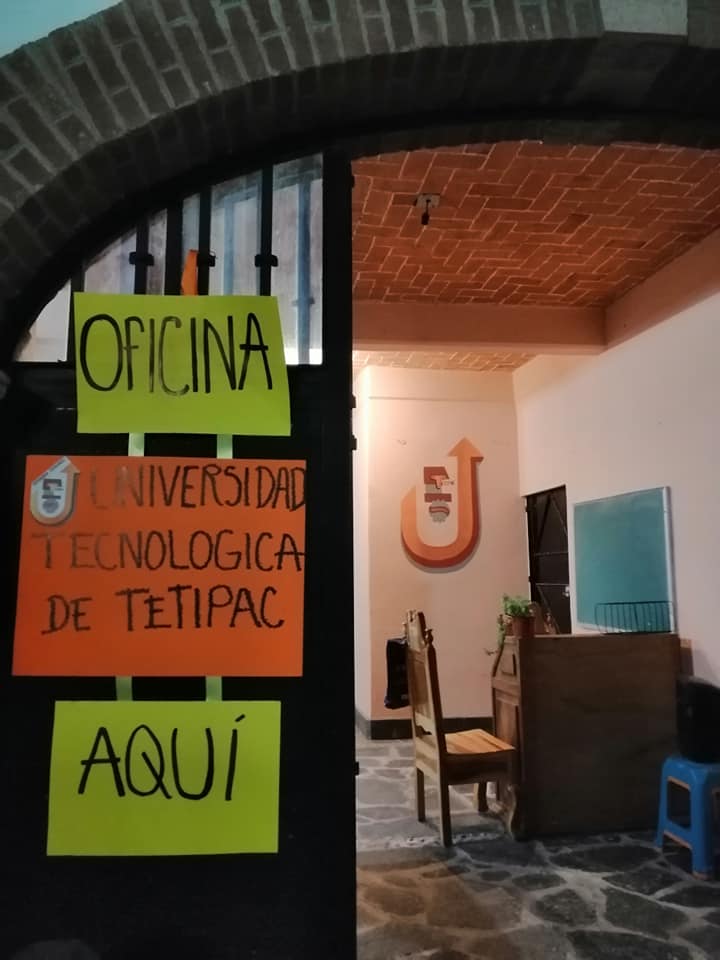 OFICINA
UNIVERSIDAD
TECNOLOGICA
DE TETIPAC
AQUÍ